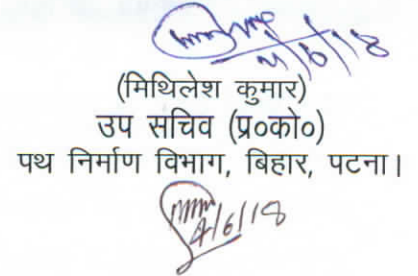 4/6/18
(मिथिलेश कुमार)
उप सचिव (प्र०को०)
पथ निर्माण विभाग, बिहार, पटना।
4/6/18